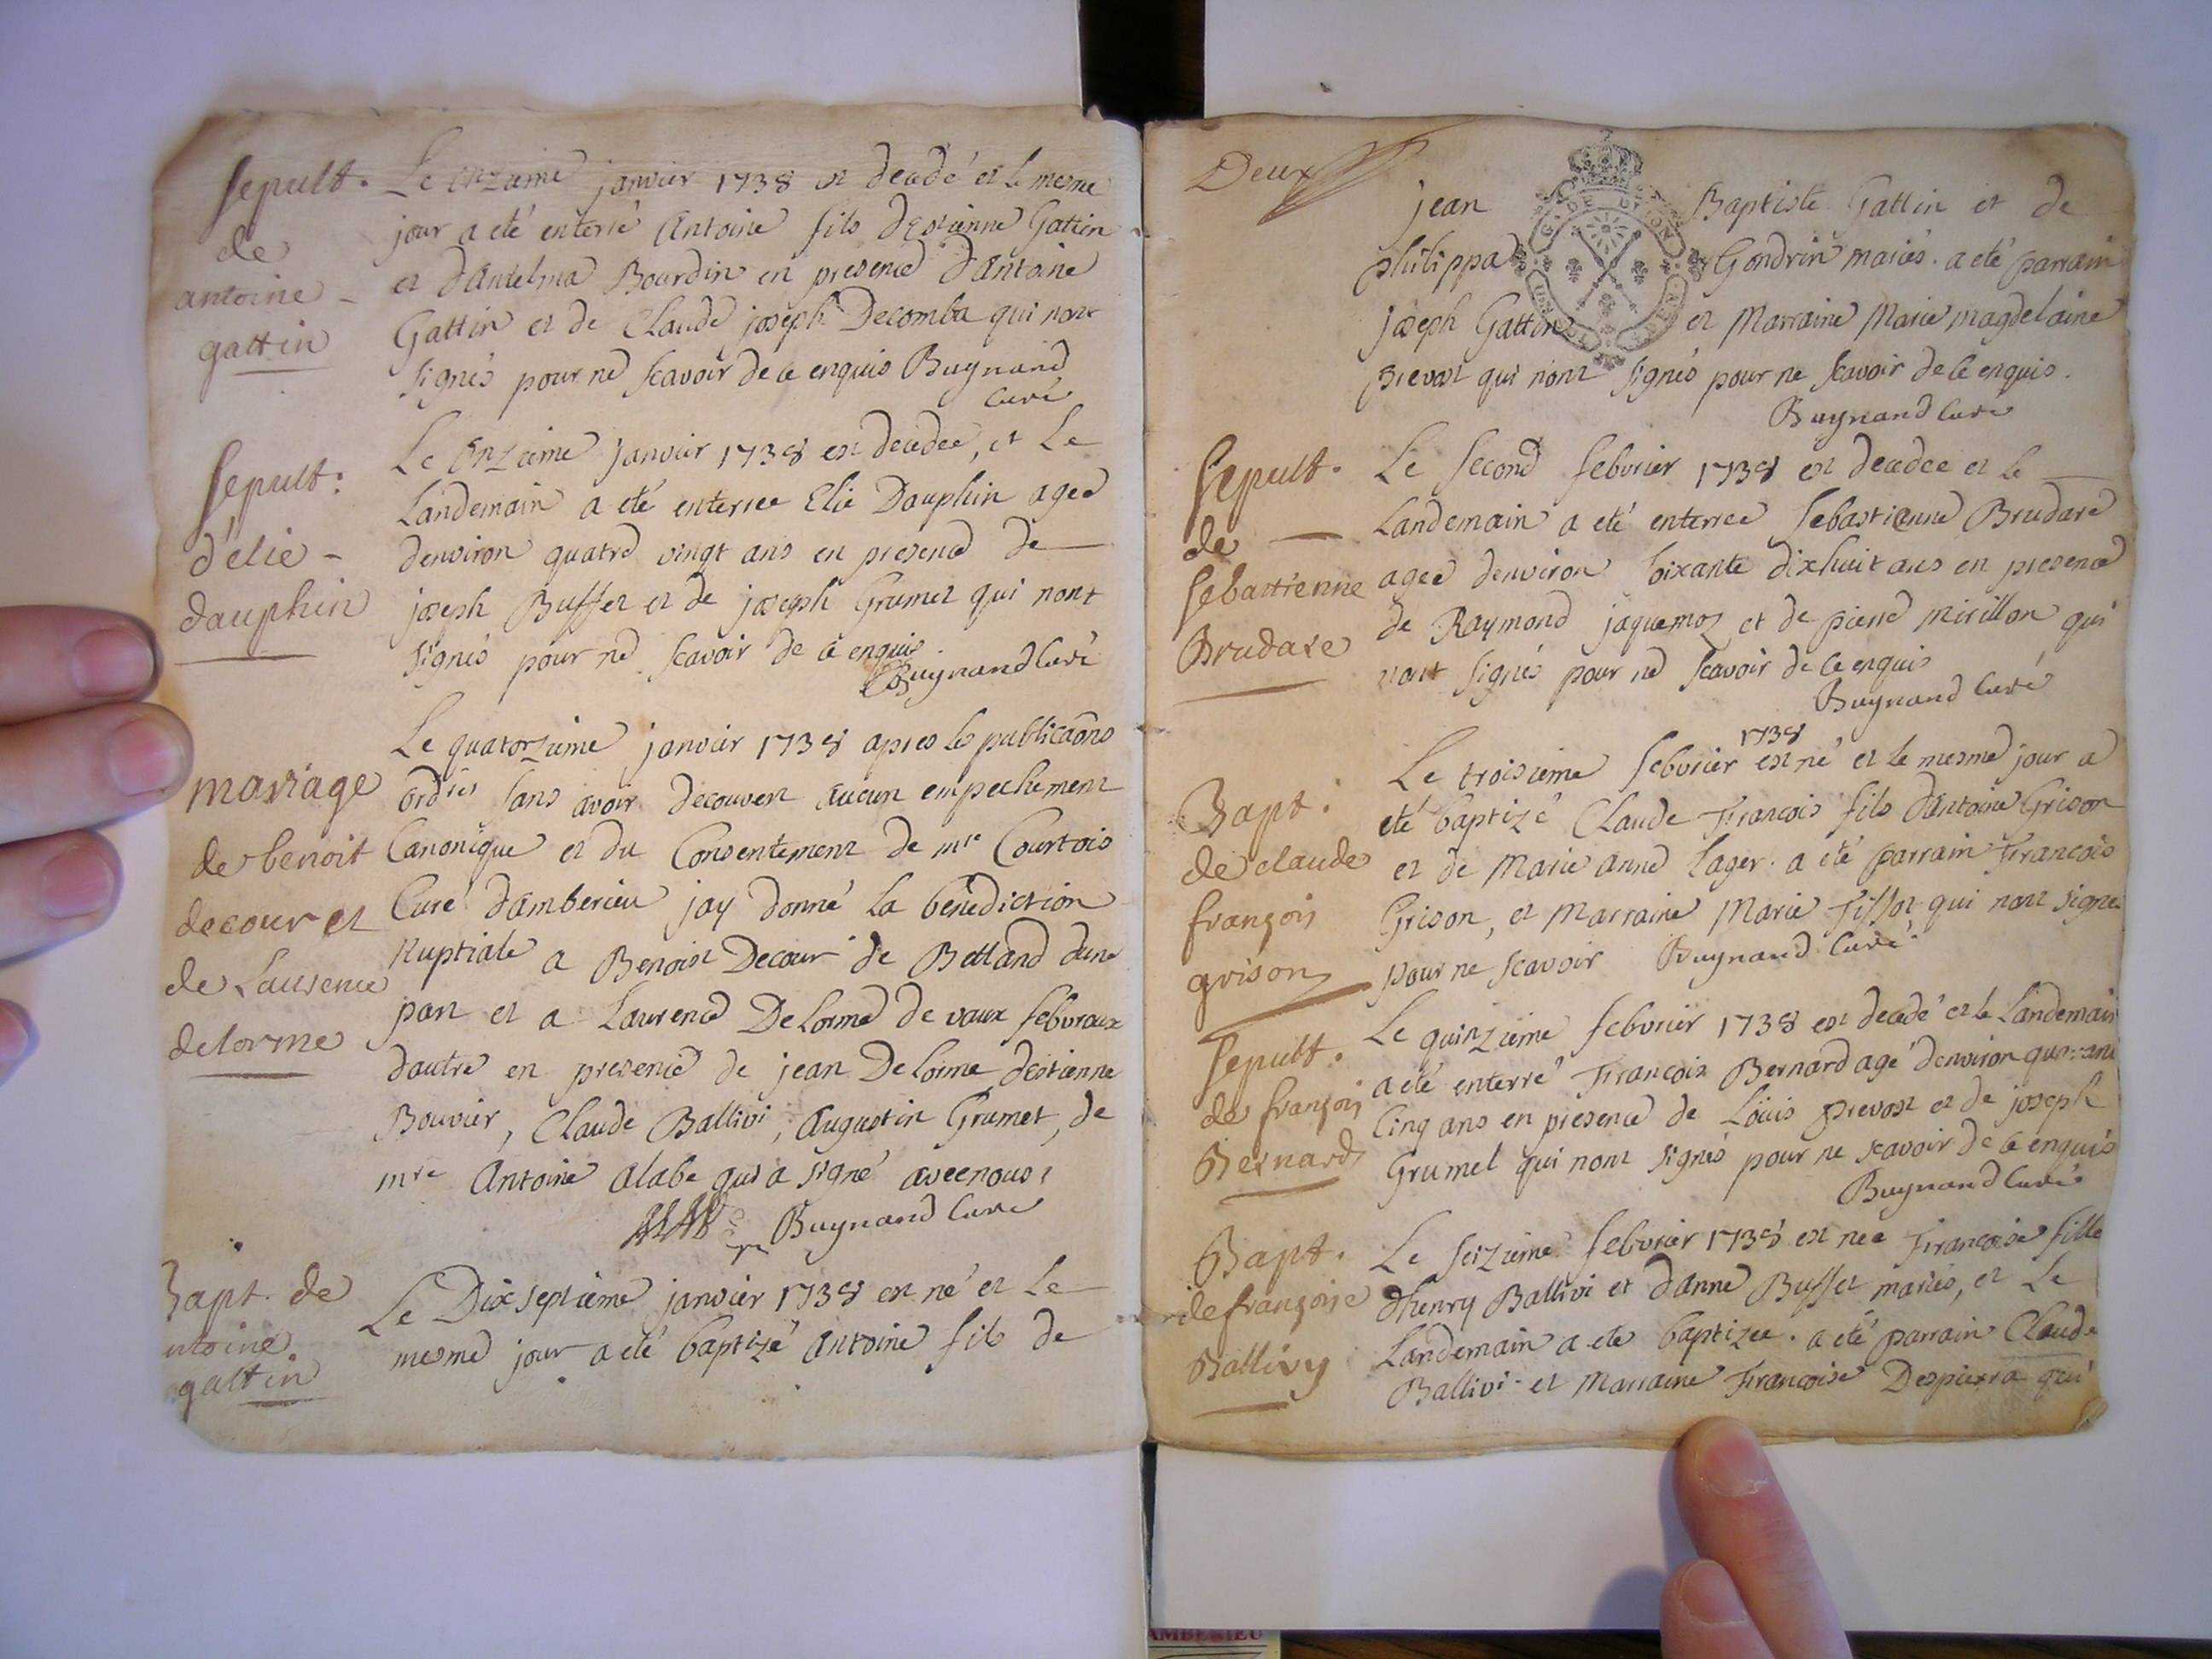 Sepult.
de
antoine -
gattin
Le onzieme janvier 1738 est decedé et le mesme
jour a eté enterré Antoine fils d'Estienne Gattin
et d'Antelma Bourdin en presence d'Antoine
Gattin et de Claude joseph Decomba qui n'ont
signés pour ne scavoir de ce enquis Buynand
curé
Sepult:
d'elie -
dauphin
Le Onzieme janvier 1738 est decedee, et Le
Landemain a eté enterree Elie Dauphin agee
denviron quatre vingt ans en presence de
joseph Buffet et de joseph Grumet qui n'ont
signés pour ne scavoir de ce enquis.
Buynand Curé
mariage
de benoit
decour et
de Laurence
delorme
Le quatorzieme janvier 1738 apres les publicaõns
ordres sans avoir decouvert aucun empechement
Canonique et du Consentement de mre Courtois
Curé d'amberieu jay donné la benediction
Nuptiale a Benoist Decour de Bettand dune
part et a Laurence Delorme de vaux febvraux
dautre en presence de jean Delorme, destienne
Bouvier, Claude Ballivi, Augustin Grumet, de
mre Antoine alabe qui a signé avec nous.
Buynand Curé
Bapt. de
ntoine
gattin
Le Dix septieme janvier 1738 est né et Le
mesme jour a eté baptizé Antoine fils de
Deux
GE DE DIJON
jean Baptiste Gattin et de
philippa Gondrin mariés. a eté parrain
joseph Gattin et Marraine Marie magdelaine
Prevost qui n'ont signés pour ne scavoir de ce enquis.
Buynand Curé
Sepult.
de
Sebastienne
Brudare
Le second febvrier 1738 est decedee et le
Landemain a eté enterree Sebastienne Brudare
agee denviron soixante dixhuit ans en presence
de Raymond jaquemoz et de pierre mirillon qui
n'ont signés pour ne scavoir de ce enquis
Buynand Curé
Bapt.
de claude
françois
grison
1738
Le troisieme febvrier est né et le mesme jour a
eté baptizé Claude François fils d'Antoine Grison
et de Marie anne Lager. a eté parrain François
Grison, et Marraine Marie Tissot qui n'ont signé
pour ne scavoir Buynand Curé
Sepult.
de françois
Bernard
Le quinzieme febvrier 1738 est decedé et le Landemain
a eté enterré François Bernard agé denviron quarante
Cinq ans en presence de Loüis prevost et de joseph
Grumel qui n'ont signés pour ne scavoir de ce enquis
Buynand Curé
Bapt.
de françoise
Ballivy
Le seizieme febvrier 1738 est nee Françoise fille
d'henry Ballivi et d'anne Buffet mariés, et Le
Landemain a ete baptizee. a eté parrain Claude
Ballivi et Marraine Françoise Despierra qui
AMBERIEU